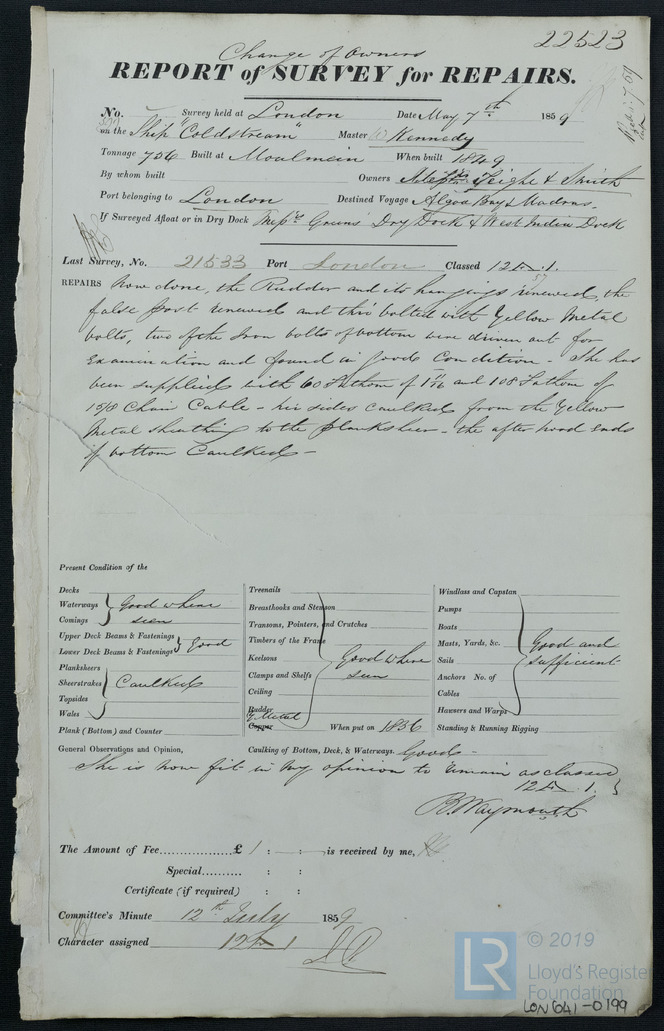 22523
Change of Owners
REPORT of SURVEY for REPAIRS.
No. Survey held at London Date May 7th 1859
on the Ship "Coldstream" Master Kennedy
Tonnage 756 Built at Moulmein When built 1849
By whom built Owners Teighe & Smith
Port belonging to London Destined Voyage Algoa Bay & Madras.
If Surveyed Afloat or in Dry Dock Messrs Greens Dry Dock & West India Dock
Last Survey, No. 21533 Port London Classed 12 A 1.
REPAIRS now done, the Rudder and its hangings renewed, the
false post renewed and thro' bolted with Yellow Metal
bolts, two of the Iron bolts of bottom were driven out for
Examination and found in good Condition - She has
been supplied with 60 Fathom of 1 7/16 and 108 Fathom of
1 5/8 Chain Cable - her sides caulked from the Yellow
Metal sheathing to the planksheer - the after hood ends
of bottom Caulked -
Present Condition of the
Decks
Waterways
Comings
Good where
seen
Upper Deck Beams & Fastenings
Lower Deck Beams & Fastenings
Good
Planksheers
Sheerstrakes
Topsides
Wales
Caulked
Plank (Bottom) and Counter
Treenails
Breasthooks and Stemson
Transoms, Pointers, and Crutches
Timbers of the Frame
Keelsons
Clamps and Shelfs
Ceiling
Rudder
Good where
seen
Y Metal
Copper When put on 1836
Windlass and Capstan
Pumps
Boats
Masts, Yards, &c.
Sails
Anchors No. of
Cables
Hawsers and Warps
Good and
sufficient
Standing & Running Rigging
General Observations and Opinion, Caulking of Bottom, Deck, & Waterways. Good -
She is now fit in my opinion to remain as classed
12 A 1.
B. Waymouth
The Amount of Fee £ 1 : - : - is received by me,
Special : :
Certificate (if required) : :
Committee's Minute 12th July 1859
Character assigned 12 A 1
LR © 2019
Lloyd's Register
Foundation
LON641-0199